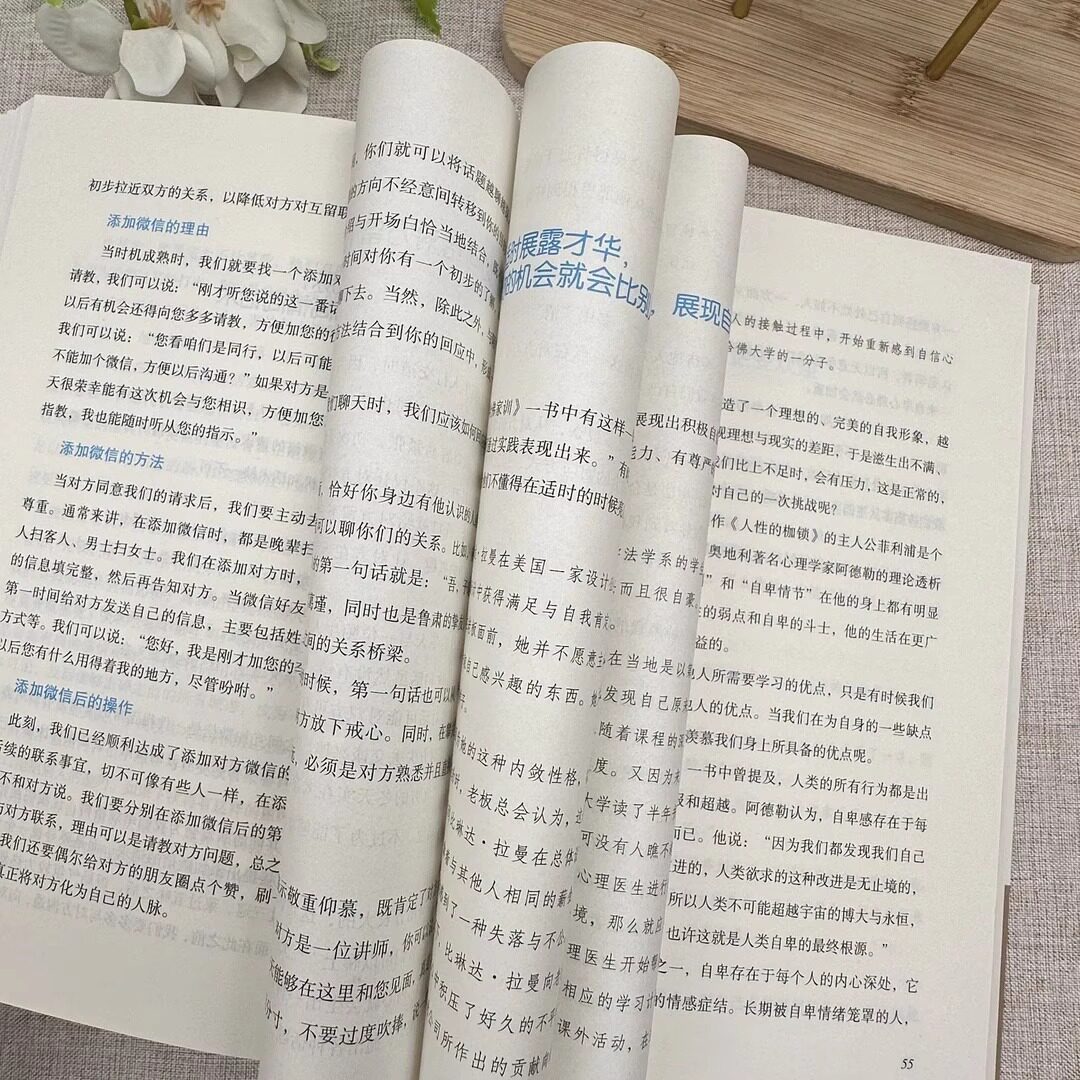 初步拉近双方的关系，以降低对方对互留联
添加微信的理由
当时机成熟时，我们就要找一个添加对
请教，我们可以说：“刚才听您说的这一番话
以后有机会还得向您多多请教，方便加您的
我们可以说：“您看咱们是同行，以后可能
不能加个微信，方便以后沟通？”如果对方是
天很荣幸能有这次机会与您相识，方便加您
指教，我也能随时听从您的指示。”
添加微信的方法
当对方同意我们的请求后，我们要主动去
尊重。通常来讲，在添加微信时，都是晚辈扫
人扫客人、男士扫女士。我们在添加对方时，
的信息填完整，然后再告知对方。当微信好友
第一时间给对方发送自己的信息，主要包括姓
方式等。我们可以说：“您好，我是刚才加您的
以后您有什么用得着我的地方，尽管吩咐。”
添加微信后的操作
此刻，我们已经顺利达成了添加对方微信的
续的联系事宜，切不可像有些人一样，在添
不和对方说。我们要分别在添加微信后的第
与对方联系，理由可以是请教对方问题，总之
我们还要偶尔给对方的朋友圈点个赞，刷
真正将对方化为自己的人脉。
，你们就可以将话题越聊
的方向不经意间转移到你的
相与开场白恰当地结合，
时间对你有一个初步的了解
下去。当然，除此之外，
法结合到你的回应中，形
们聊天时，我们应该如何
恰好你身边有他认识的人
可以聊你们的关系。比如
的第一句话就是：“吾，子
瑾，同时也是鲁肃的挚
间的关系桥梁。
时候，第一句话也可以
方放下戒心。同时，在
，必须是对方熟悉并且
示敬重仰慕，既肯定了对
对方是一位讲师，你可以
能够在这里和您见面，
分寸，不要过度吹捧，说
时展露才华，
的机会就会比别
家训》一书中有这样一
过实践表现出来。”有
们不懂得在适时的时候
·拉曼在美国一家设计
中获得满足与自我肯
板面前，她并不愿意主
自己感兴趣的东西。她
她的这种内敛性格，
，老板总会认为，这
比琳达·拉曼在总体
着与其他人相同的薪
到了一种失落与不公
，比琳达·拉曼向老
中积压了好久的不平
司所作出的贡献
展现自
展现出积极自
能力、有尊严
法学系的学
而且很自豪。
在当地是以
发现自己原
随着课程的深
度。又因为
大学读了半年
可没有人瞧不
心理医生进行
境，那么就应
理医生开始
相应的学习计
课外活动，在
人的接触过程中，开始重新感到自信心
哈佛大学的一分子。
造了一个理想的、完美的自我形象，越
现理想与现实的差距，于是滋生出不满、
我们比上不足时，会有压力，这是正常的，
对自己的一次挑战呢？
作《人性的枷锁》的主人公菲利浦是个
奥地利著名心理学家阿德勒的理论透析
”和“自卑情节”在他的身上都有明显
的弱点和自卑的斗士，他的生活在更广
益的。
人所需要学习的优点，只是有时候我们
人的优点。当我们在为自身的一些缺点
羡慕我们身上所具备的优点呢。
一书中曾提及，人类的所有行为都是出
和超越。阿德勒认为，自卑感存在于每
而已。他说：“因为我们都发现我们自己
进的，人类欲求的这种改进是无止境的，
所以人类不可能超越宇宙的博大与永恒，
也许这就是人类自卑的最终根源。”
之一，自卑存在于每个人的内心深处，它
的情感症结。长期被自卑情绪笼罩的人，
55